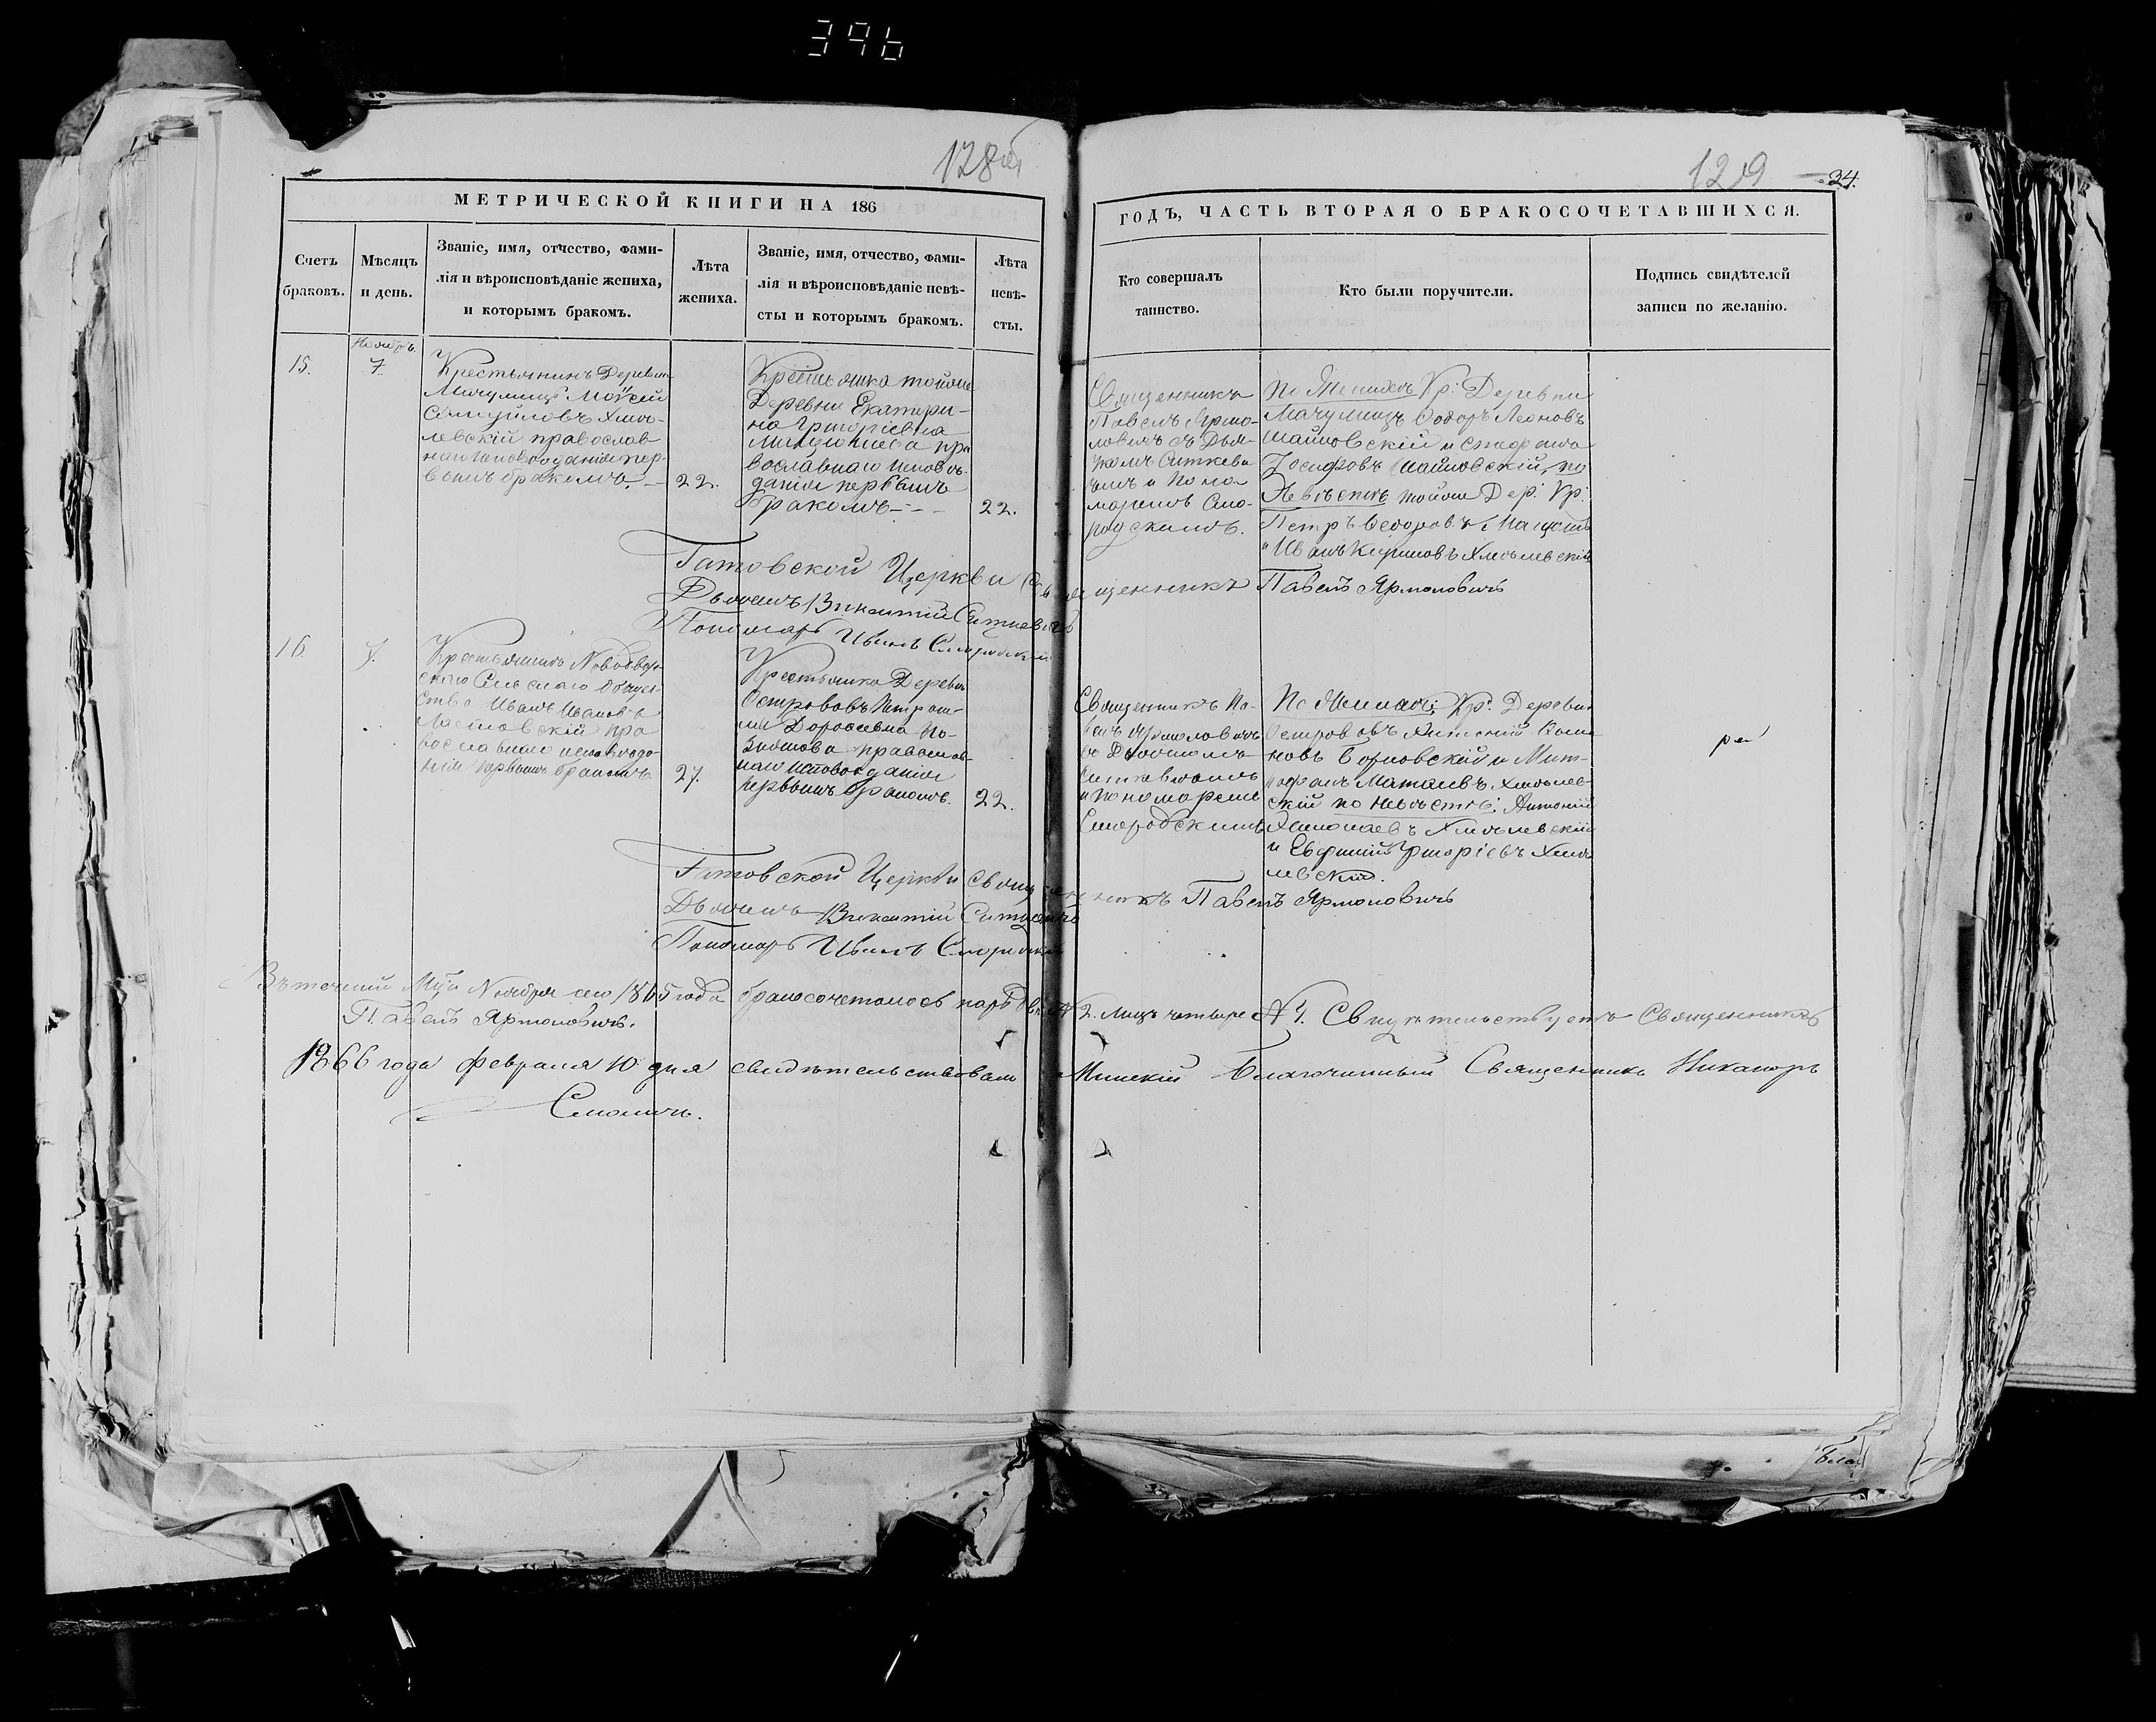 396
128об
129
34.
МЕТРИЧЕСКОЙ КНИГИ НА 186
ГОДЪ, ЧАСТЬ ВТОРАЯ О БРАКОСОЧЕТАВШИХСЯ.
Счетъ
браковъ.
Мѣсяцъ
и день.
Званіе, имя, отчество, фами-
лія и вѣроисповѣданіе жениха,
и которымъ бракомъ.
Лѣта
жениха.
Званіе, имя, отчество, фами-
лія и вѣроисповѣданіе невѣ-
сты и которымъ бракомъ.
Лѣта
невѣ-
сты.
Кто совершалъ
таинство.
Кто были поручители.
Подпись свидѣтелей
записи по желанію.
15.
Ноябрь.
7.
Крестьянинъ Деревни
Мачулищъ Моѵсей
Самуиловъ Хмѣ-
левскій православ
наго исповѣданія пер-
вымъ бракомъ. –
22.
Крестьянка тойже
Деревни Екатери-
на Григоріева
пра
вославнаго исповѣ-
данія первымъ
бракомъ – – –
22.
Священникъ
Павелъ Ярмо-
ловичъ съ Дья-
комъ Ситкеви
чемъ и Поно
маремъ Смо-
родскимъ.
По Женихѣ Кр: Деревни
Мачулищъ Ѳодоръ Леоновъ
и
Іосифовъ по
Невѣстѣ тойже Дер: Кр:
Петръ Ѳедоровъ
и Иванъ Хмѣлевскій
Гатовской Церкви Священникъ Павелъ Ярмоловичъ
Дьячекъ Викентій Ситкевичъ
Пономарь Иванъ Смородскій
16.
7.
Крестьянинъ Новодвор-
скаго Сельскаго Общес-
тва Иванъ Ивановъ
Ластовскій пра
вославнаго исповѣда
нія первымъ бракомъ.
27.
Крестьянка Деревни
Острововъ
Дороѳеевна
православ-
наго исповѣданія
первымъ бракомъ.
22.
Священникъ Па-
велъ Ярмоловичъ
съ Дьячкомъ
Ситкевичемъ
и Пономаремъ
Смородскимъ
По Женихѣ: Кр: Деревни
Острововъ
новъ и Мит-
рофанъ Матѳеевъ Хмѣлев-
скій по невѣстѣ: Антоній
Хмѣлевскій
и Евфимій Григоріевъ Хмѣ
левскій.
Гатовской Церкви Священникъ Павелъ Ярмоловичъ
Дьячекъ Викентій Ситкевичъ
Пономарь Иванъ Смородскій
Въ теченіи Мца Ноября сего 1865 года бракосочеталось паръ двѣ № 2. Лицъ четыре № 4. Свидѣтельствуетъ Священникъ
Павелъ Ярмоловичъ.
1866 года Февраля 10 дня свидѣтельствовалъ Минскій Благочинный Священникъ Никаноръ
Смоличъ.